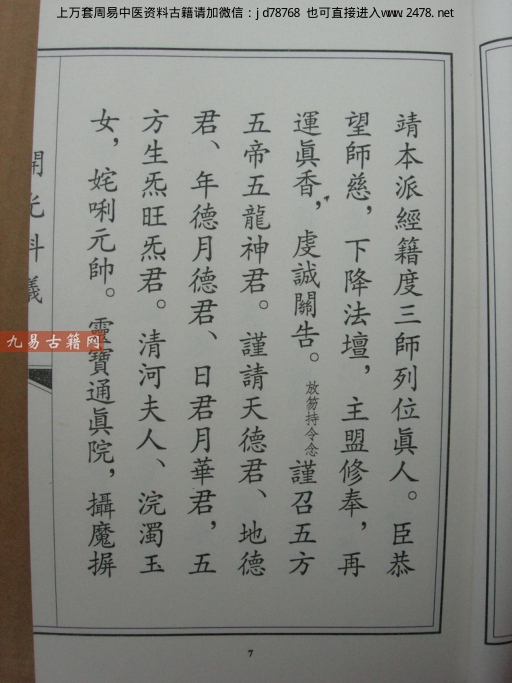 上万套周易中医资料古籍请加微信：jd78768 也可直接进入www.2478.net
靖本派經籍度三師列位眞人。臣恭
望師慈，下降法壇，主盟修奉，再
運眞香，虔誠關告。放笏持令念謹召五方
五帝五龍神君。謹請天德君、地德
君、年德月德君、日君月華君，五
方生炁旺炁君。清河夫人、浣濁玉
女，姹唎元帥。靈寶通眞院，攝魔摒
開光科儀
九易古籍网
7